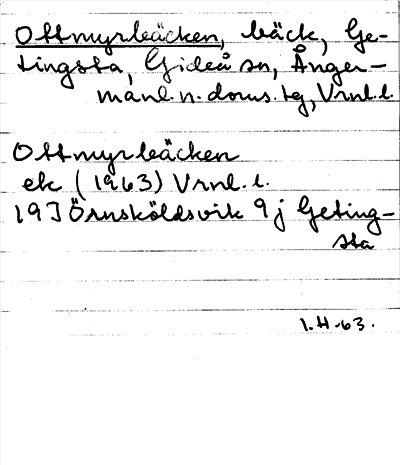 Ottmyrbäcken, bäck, Ge-
tingsta, Gideå sn, Ånger-
manl.n.doms.tg, Vrnl.l.
Ottmyrbäcken
ek (1963) Vrnl.l.
19J Örnsköldsvik 9j Geting-
sta
I.H-63.